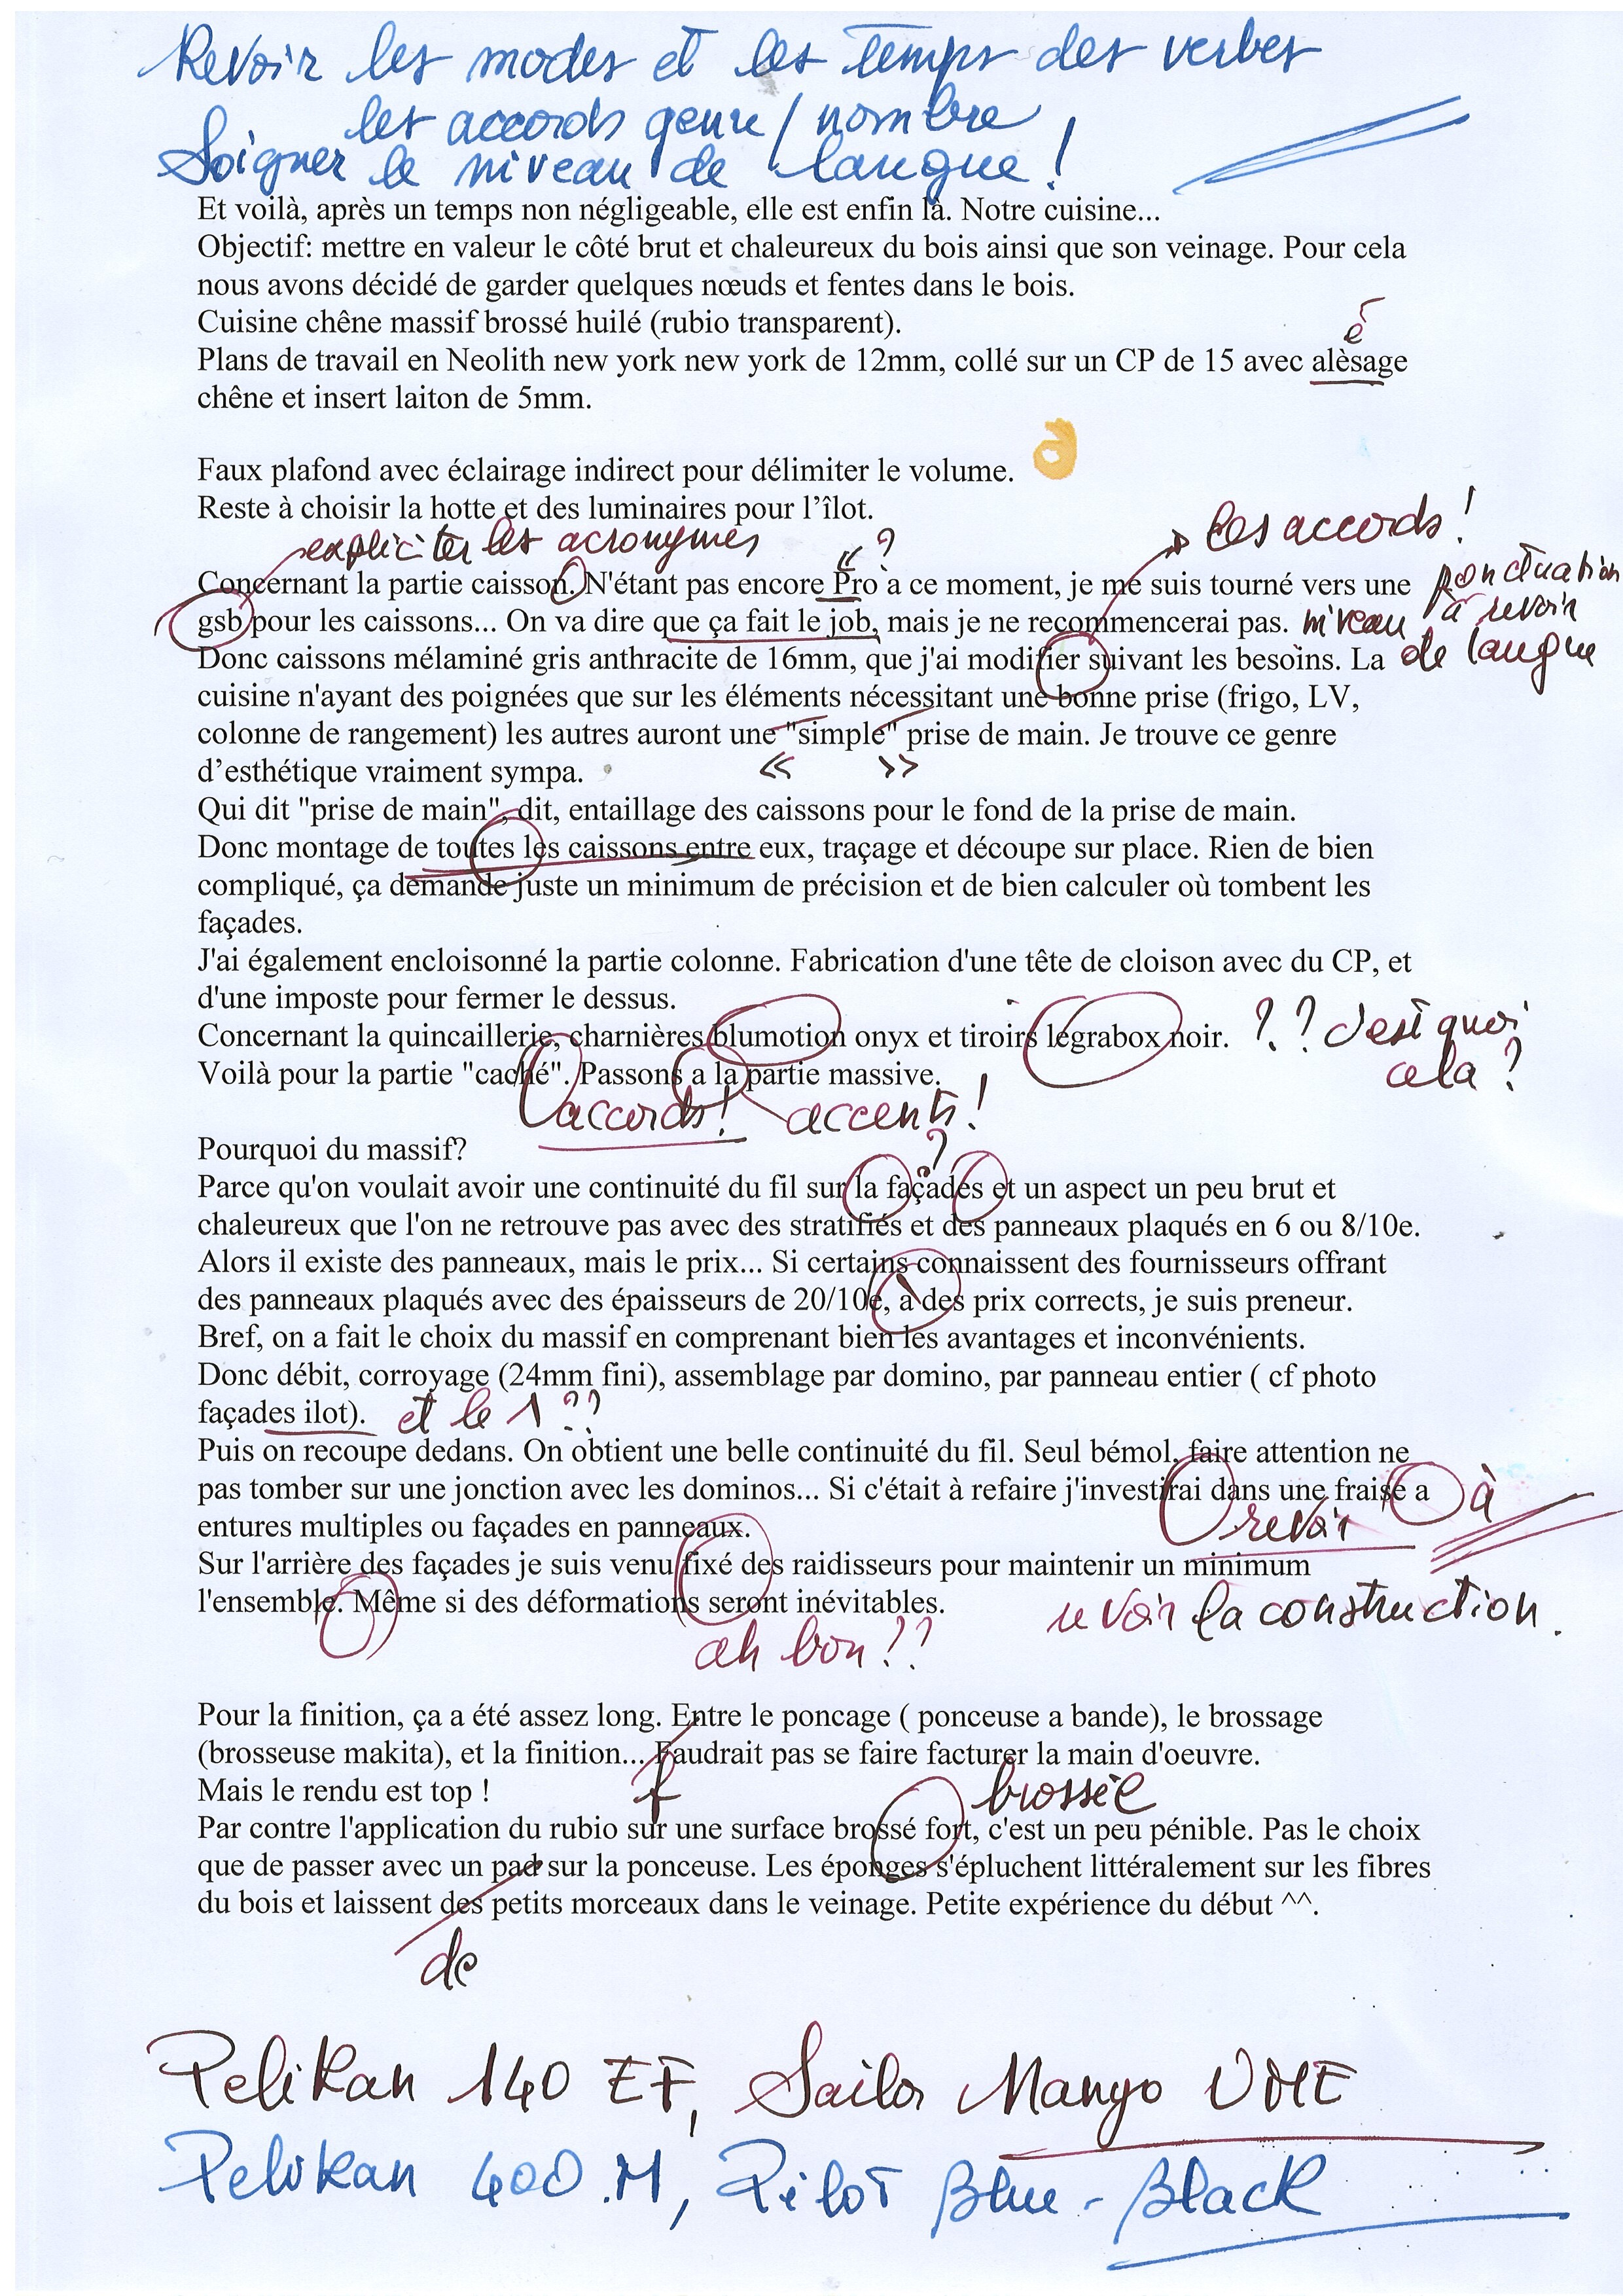 Revoir les modes et les temps des verbes
les accords genre / nombre
Soigner le niveau de langue !
Et voilà, après un temps non négligeable, elle est enfin là. Notre cuisine...
Objectif: mettre en valeur le côté brut et chaleureux du bois ainsi que son veinage. Pour cela
nous avons décidé de garder quelques nœuds et fentes dans le bois.
Cuisine chêne massif brossé huilé (rubio transparent).
é
Plans de travail en Neolith new york new york de 12mm, collé sur un CP de 15 avec alèsage
chêne et insert laiton de 5mm.
Faux plafond avec éclairage indirect pour délimiter le volume. 👌
Reste à choisir la hotte et des luminaires pour l’îlot.
expliciter les acronymes « ? les accords !
Concernant la partie caisson. N'étant pas encore Pro a ce moment, je me suis tourné vers une ponctuation à revoir
gsb pour les caissons... On va dire que ça fait le job, mais je ne recommencerai pas. niveau de langue
Donc caissons mélaminé gris anthracite de 16mm, que j'ai modifier suivant les besoins. La
cuisine n'ayant des poignées que sur les éléments nécessitant une bonne prise (frigo, LV,
colonne de rangement) les autres auront une "simple" prise de main. Je trouve ce genre
d’esthétique vraiment sympa. << >>
Qui dit "prise de main", dit, entaillage des caissons pour le fond de la prise de main.
Donc montage de toutes les caissons entre eux, traçage et découpe sur place. Rien de bien
compliqué, ça demande juste un minimum de précision et de bien calculer où tombent les
façades.
J'ai également encloisonné la partie colonne. Fabrication d'une tête de cloison avec du CP, et
d'une imposte pour fermer le dessus.
Concernant la quincaillerie, charnières blumotion onyx et tiroirs légrabox noir. ?? c'est quoi
Voilà pour la partie "caché". Passons a la partie massive. cela ?
accords ! accents !
Pourquoi du massif? ?
Parce qu'on voulait avoir une continuité du fil sur la façades et un aspect un peu brut et
chaleureux que l'on ne retrouve pas avec des stratifiés et des panneaux plaqués en 6 ou 8/10e.
Alors il existe des panneaux, mais le prix... Si certains connaissent des fournisseurs offrant
des panneaux plaqués avec des épaisseurs de 20/10e, a des prix corrects, je suis preneur.
Bref, on a fait le choix du massif en comprenant bien les avantages et inconvénients.
Donc débit, corroyage (24mm fini), assemblage par domino, par panneau entier ( cf photo
façades ilot). et le 1 ??
Puis on recoupe dedans. On obtient une belle continuité du fil. Seul bémol, faire attention ne
pas tomber sur une jonction avec les dominos... Si c'était à refaire j'investirai dans une fraise a à
entures multiples ou façades en panneaux. revoir
Sur l'arrière des façades je suis venu fixé des raidisseurs pour maintenir un minimum
l'ensemble. Même si des déformations seront inévitables. revoir la construction.
ah bon ??
Pour la finition, ça a été assez long. Entre le poncage ( ponceuse a bande), le brossage
(brosseuse makita), et la finition... Faudrait pas se faire facturer la main d'oeuvre.
Mais le rendu est top ! f brossée
Par contre l'application du rubio sur une surface brossé fort, c'est un peu pénible. Pas le choix
que de passer avec un pad sur la ponceuse. Les éponges s'épluchent littéralement sur les fibres
du bois et laissent des petits morceaux dans le veinage. Petite expérience du début ^^.
de
Pelikan 140 EF, Sailor Manyo UME
Pelikan 400 M, Pilot Blue-Black